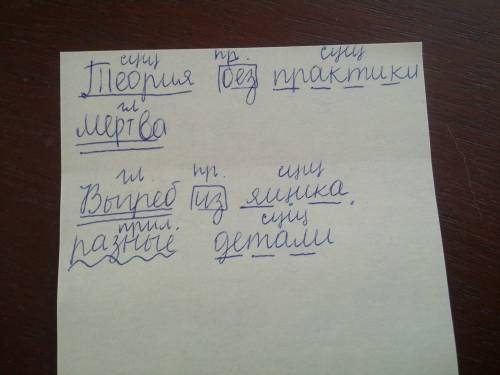 сущ пр. сущ
Теория без практики
гл.
мертва
гл. пр. сущ
Выгреб из ящика
прил. сущ
разные детали